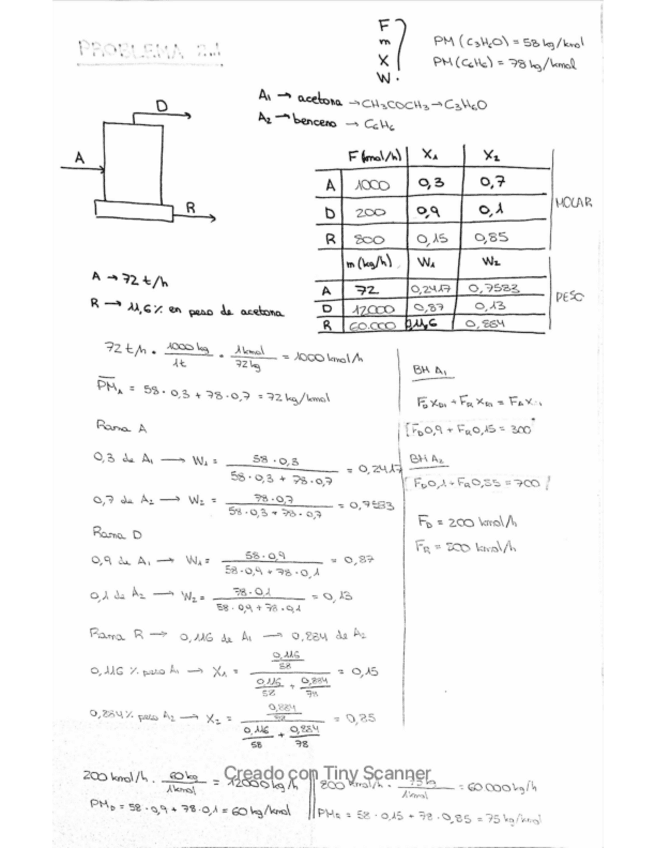 PROBLEMA 2.1
F
m
X
W.
PM (C3H6O) = 58 kg/kmol
PM (C6H6) = 78 kg/kmol
A1 → acetona → CH3COCH3 → C3H6O
A2 → benceno → C6H6
D
A
R
F (kmol/h) X1 X2
A 1000 0,3 0,7
D 200 0,9 0,1
R 800 0,15 0,85
MOLAR
m (kg/h) W1 W2
A 72 0,2417 0,7583
D 12000 0,87 0,13
R 60.000 11,6 0,884
PESO
A → 72 t/h
R → 11,6% en peso de acetona
72 t/h · 1000 kg / 1t · 1 kmol / 72 kg = 1000 kmol/h
PM_A = 58 · 0,3 + 78 · 0,7 = 72 kg/kmol
Rama A
0,3 de A1 → W1 = 58 · 0,3 / 58 · 0,3 + 78 · 0,7 = 0,2417
0,7 de A2 → W2 = 78 · 0,7 / 58 · 0,3 + 78 · 0,7 = 0,7583
Rama D
0,9 de A1 → W1 = 58 · 0,9 / 58 · 0,9 + 78 · 0,1 = 0,87
0,1 de A2 → W2 = 78 · 0,1 / 58 · 0,9 + 78 · 0,1 = 0,13
Rama R → 0,116 de A1 → 0,884 de A2
0,116 % peso A1 → X1 = 0,116/58 / 0,116/58 + 0,884/78 = 0,15
0,884% peso A2 → X2 = 0,884/78 / 0,116/58 + 0,884/78 = 0,85
BH A1
F_D X_D1 + F_R X_R1 = F_A X
F_D 0,9 + F_R 0,15 = 300
BH A2
F_D 0,1 + F_R 0,85 = 700
F_D = 200 kmol/h
F_R = 800 kmol/h
200 kmol/h · 60 kg / 1 kmol = 12000 kg/h
PM_D = 58 · 0,9 + 78 · 0,1 = 60 kg/kmol
800 kmol/h · 75 kg / 1 kmol = 60 000 kg/h
PM_R = 58 · 0,15 + 78 · 0,85 = 75 kg/kmol
Creado con Tiny Scanner